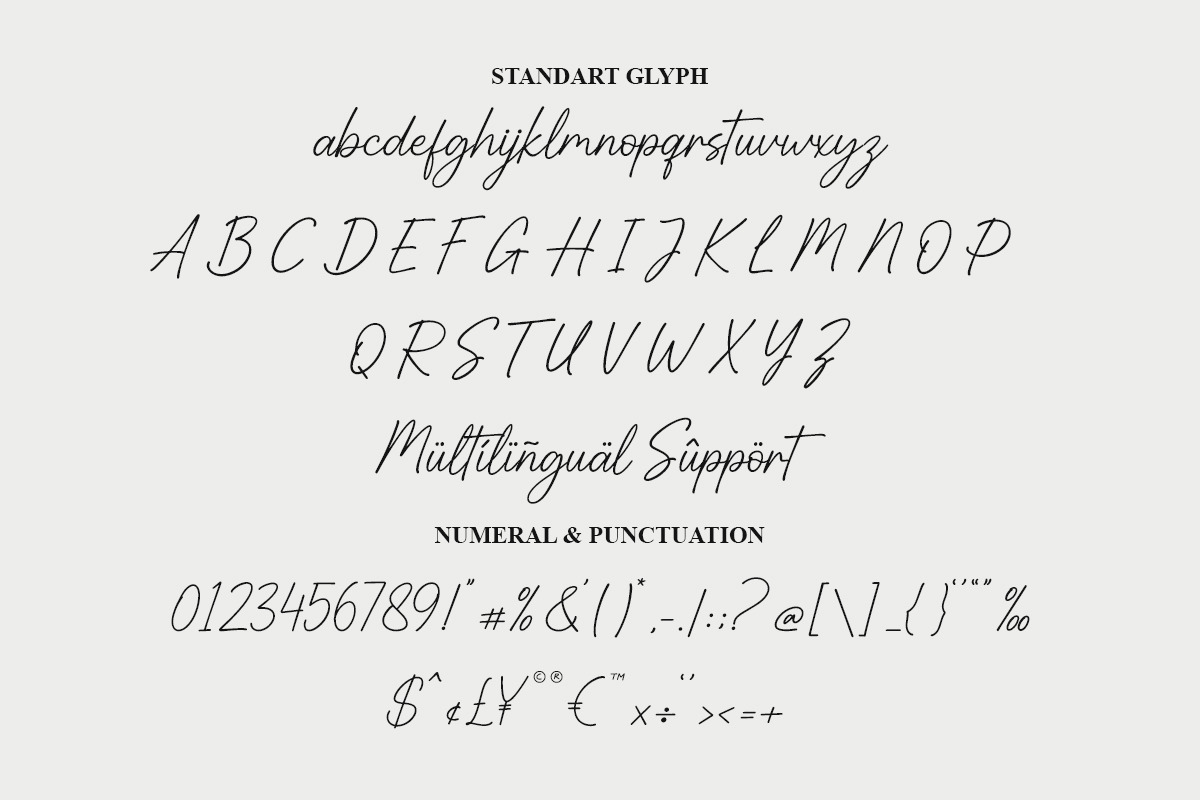 STANDART GLYPH
abcdefghijklmnopqrstuvwxyz
A B C D E F G H I J K L M N O P
Q R S T U V W X Y Z
Mültílïñguäl Sûppört
NUMERAL & PUNCTUATION
0123456789!" #%&'()* ,-./:;?@[\]_{}‘’“”‰
$^¢£¥©®€™×÷‘’><=+